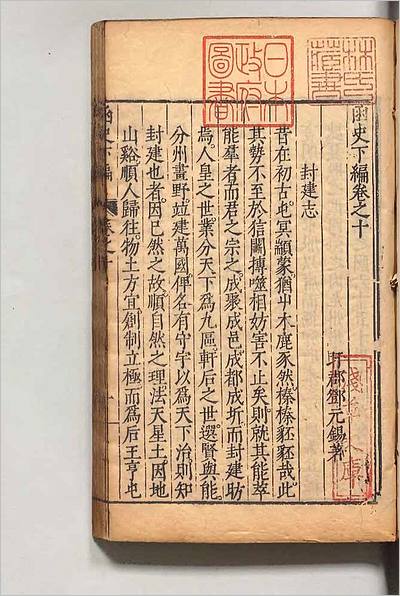 林氏藏書
日本政府圖書
函史下編卷之十
盱郡鄧元錫著
淺草文庫
封建志
昔在初古屯冥顓蒙猶屮木鹿豕然榛榛豾豾哉此
其勢不至於信鬭搏噬相妨害不止矣則就其能萃
能羣者而君之宗之成聚成邑成都成圻而封建昉
焉人皇之世業分天下爲九區軒后之世選賢與能
分州畫野竝建萬國俾各有守字以爲天下治則知
封建也者因已然之故順自然之理法天星土因地
山谿順人歸往物土方宜創制立極而爲后王亨屯
函史下編 卷之十